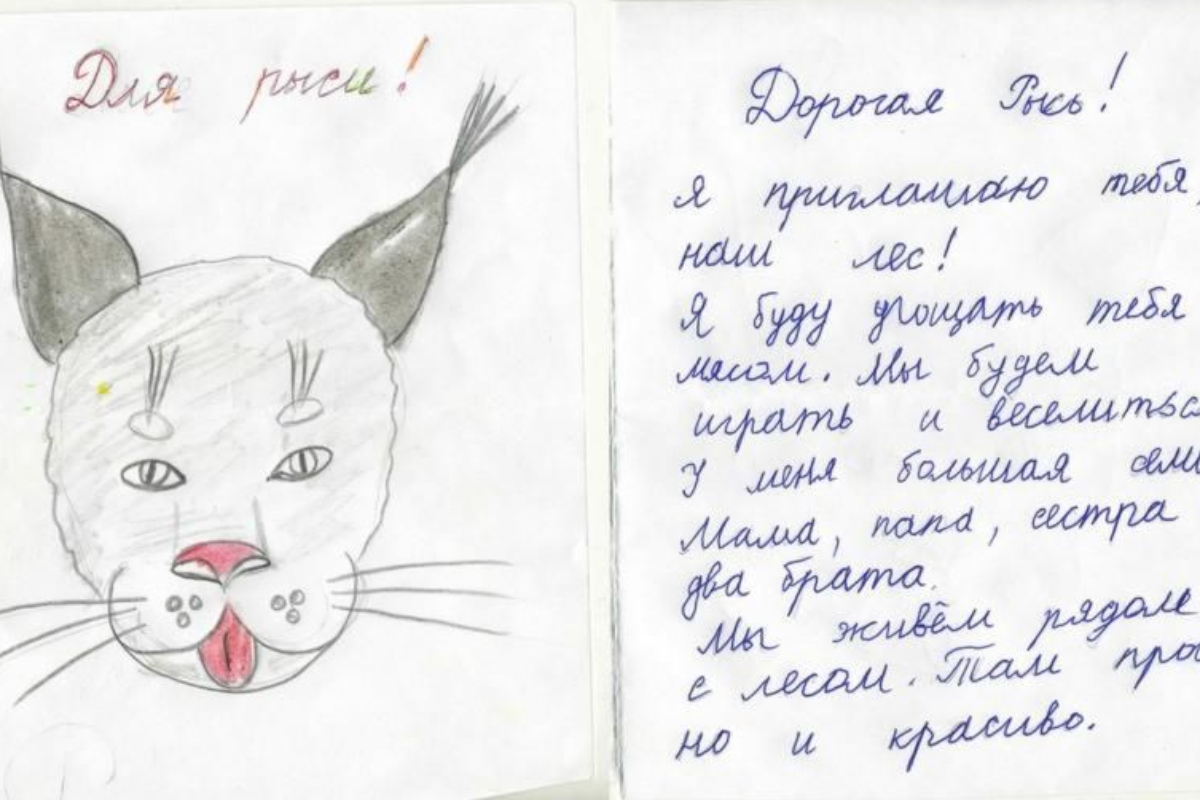 Для рыси!
Дорогая Рысь!
Я приглашаю тебя,
наш лес!
Я буду угощать тебя
мясом. Мы будем
играть и веселиться
У меня большая семь
Мама, папа, сестра
два брата.
Мы живём рядом
с лесом. Там прос
но и красиво.